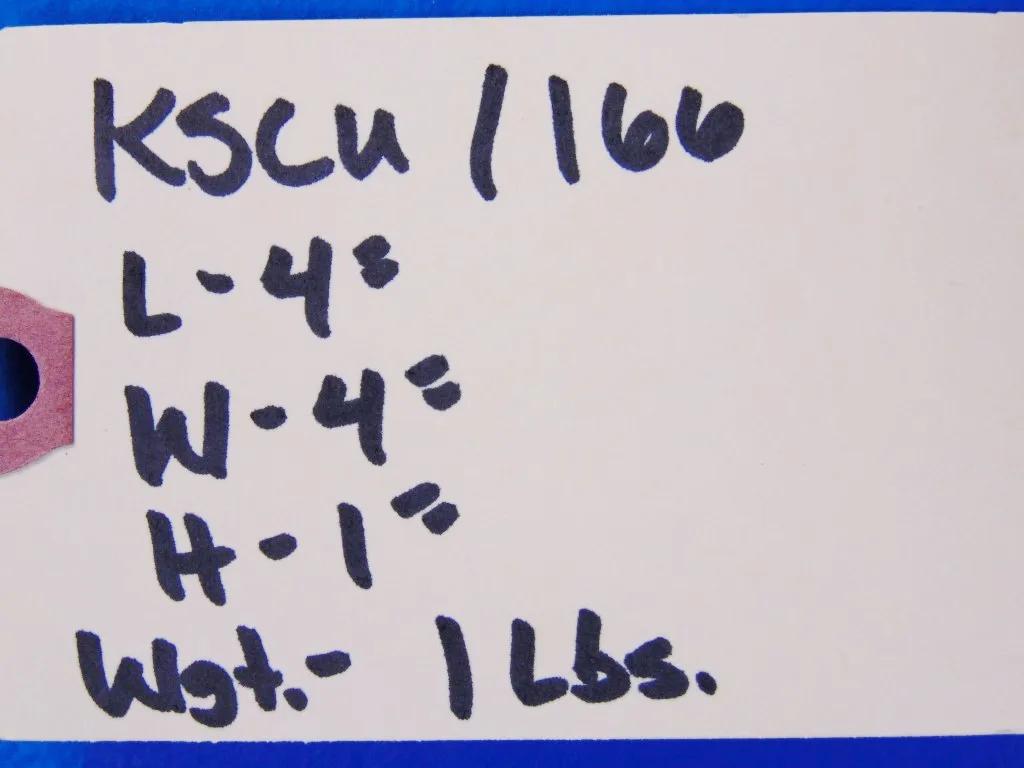 KSCU / 166
L - 4"
W - 4"
H - 1"
Wgt. - 1 Lbs.